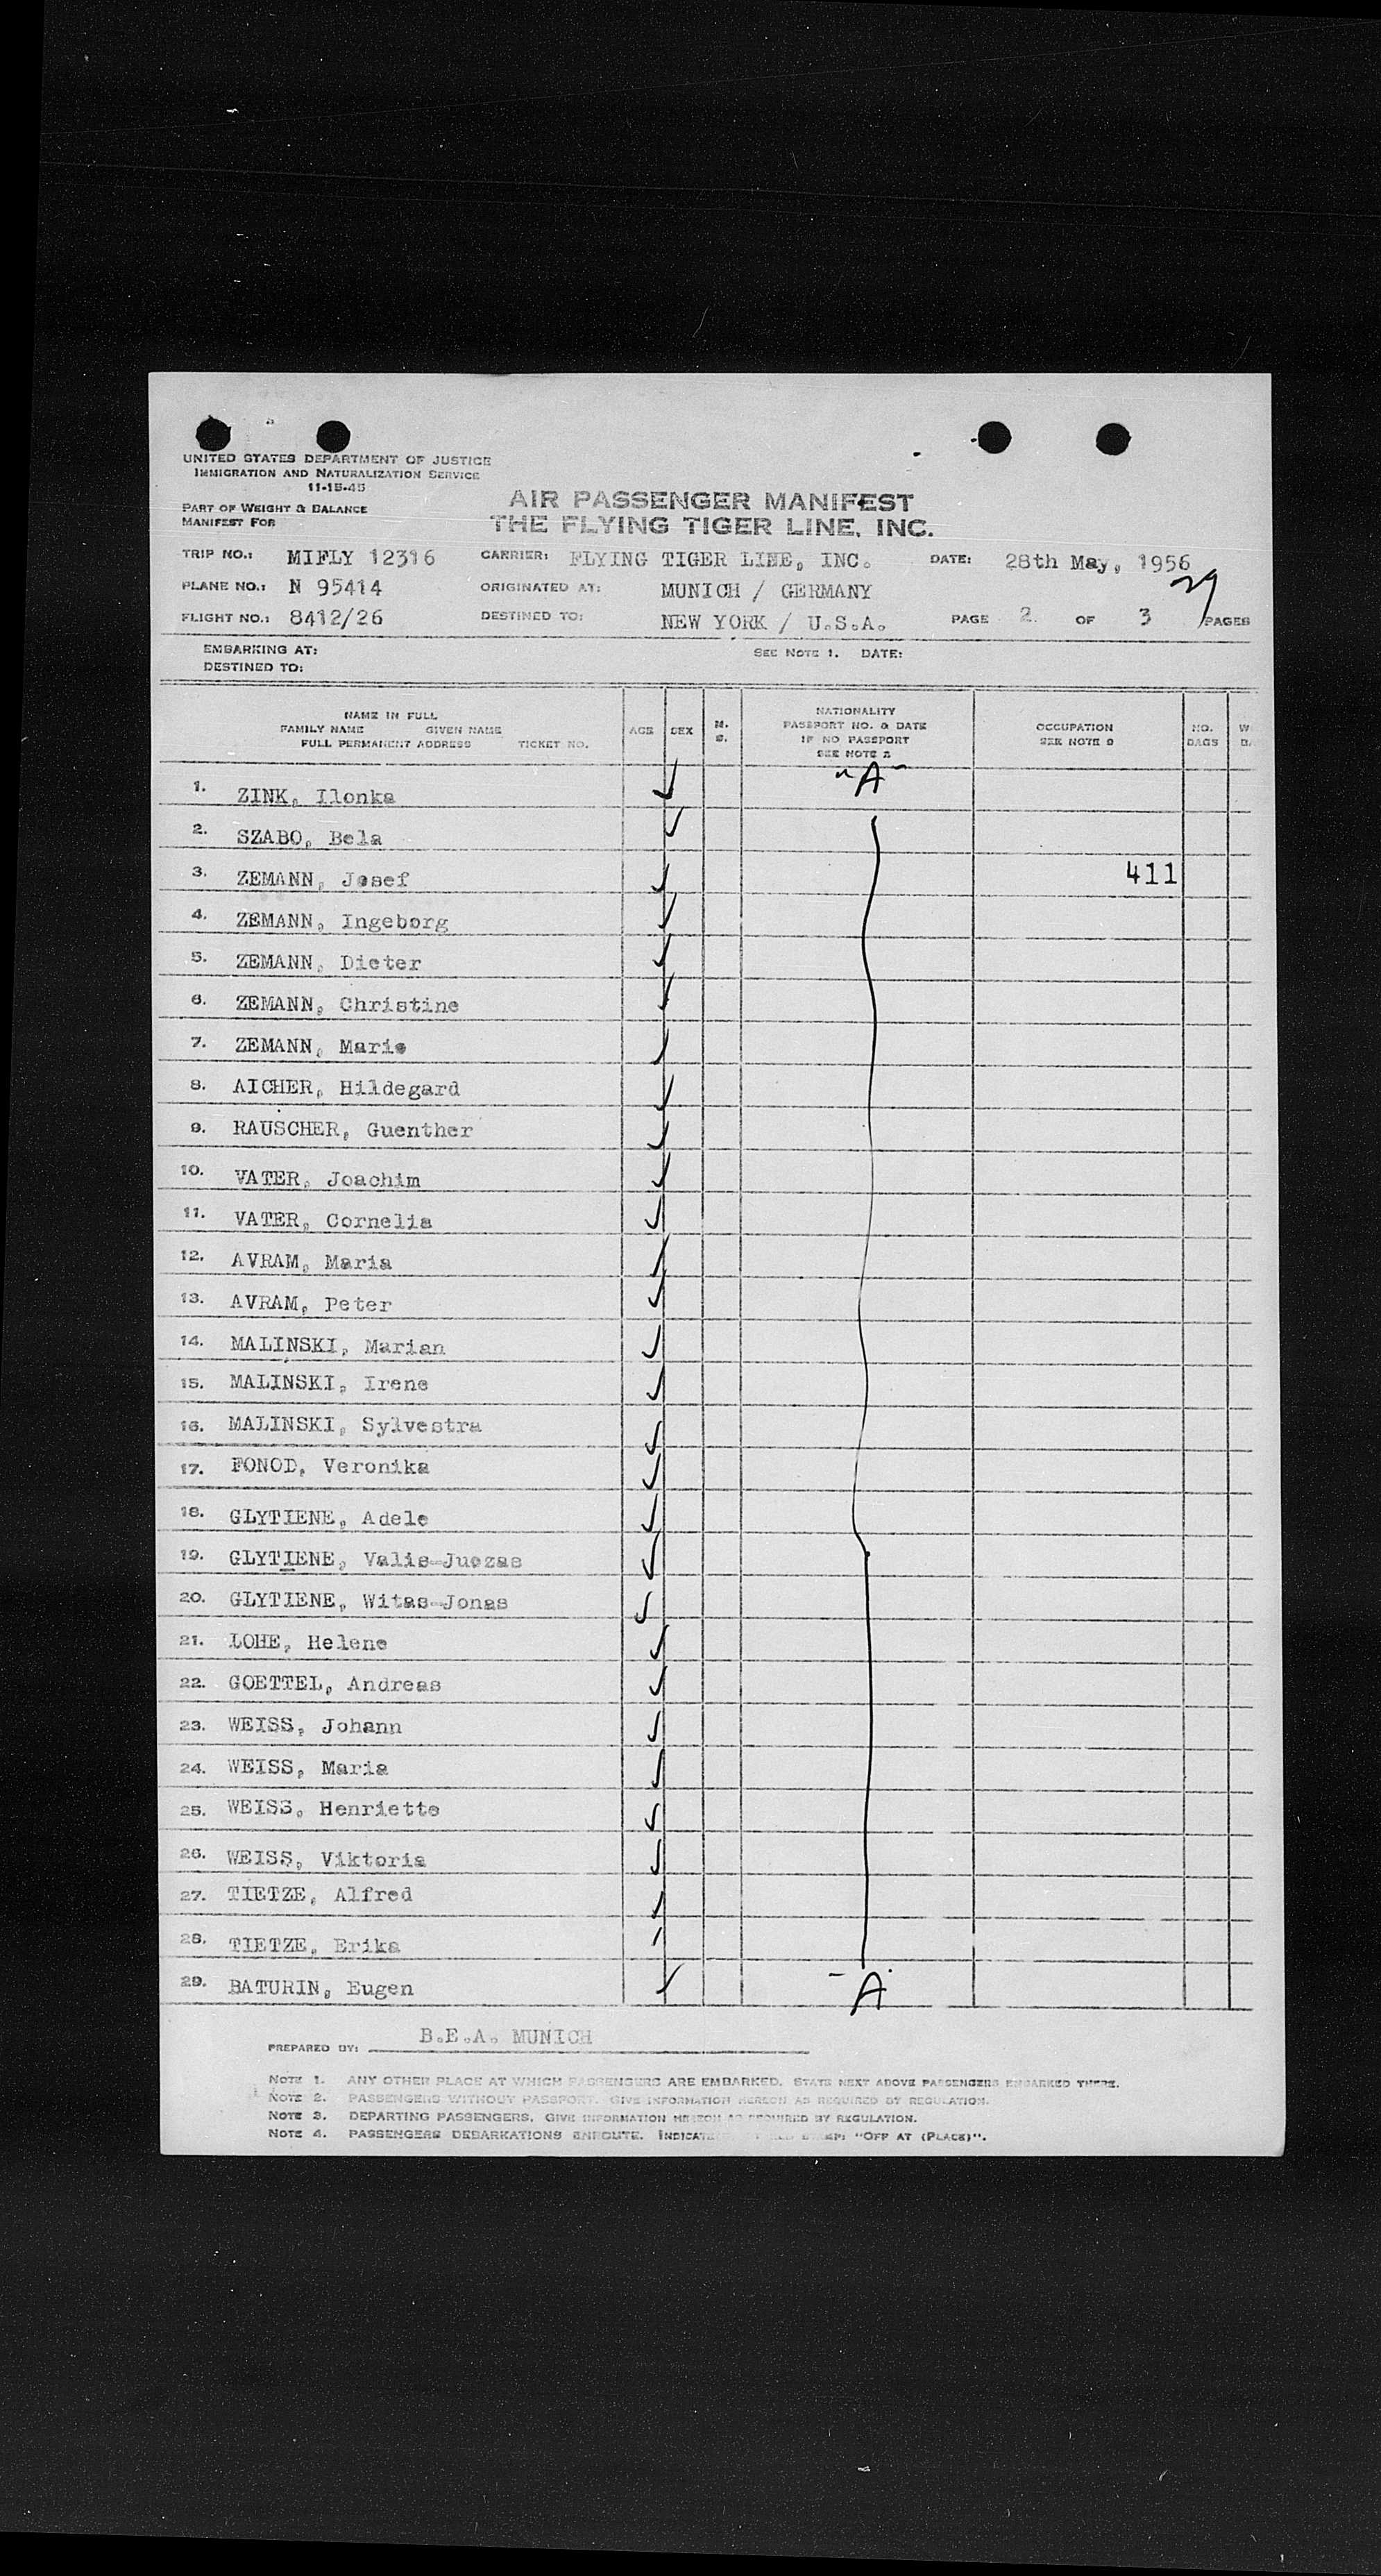 UNITED STATES DEPARTMENT OF JUSTICE
IMMIGRATION AND NATURALIZATION SERVICE
11-15-45
PART OF WEIGHT & BALANCE
MANIFEST FOR
AIR PASSENGER MANIFEST
THE FLYING TIGER LINE, INC.
TRIP NO.: MIFLY 12316 CARRIER: FLYING TIGER LINE, INC. DATE: 28th May, 1956
PLANE NO.: N 95414 ORIGINATED AT: MUNICH / GERMANY 29
FLIGHT NO.: 8412/26 DESTINED TO: NEW YORK / U.S.A. PAGE 2. OF 3 PAGES
EMBARKING AT: SEE NOTE 1. DATE:
DESTINED TO:
NAME IN FULL
FAMILY NAME GIVEN NAME
FULL PERMANENT ADDRESS TICKET NO.
AGE SEX M. S.
NATIONALITY
PASSPORT NO. & DATE
IF NO PASSPORT
SEE NOTE 2
OCCUPATION
SEE NOTE 3
NO. BAGS
1. ZINK, Ilonka "A"
2. SZABO, Bela
3. ZEMANN, Josef 411
4. ZEMANN, Ingeborg
5. ZEMANN, Dieter
6. ZEMANN, Christine
7. ZEMANN, Marie
8. AICHER, Hildegard
9. RAUSCHER, Guenther
10. VATER, Joachim
11. VATER, Cornelia
12. AVRAM, Maria
13. AVRAM, Peter
14. MALINSKI, Marian
15. MALINSKI, Irene
16. MALINSKI, Sylvestra
17. FONOD, Veronika
18. GLYTIENE, Adele
19. GLYTIENE, Valis-Juozas
20. GLYTIENE, Witas-Jonas
21. LOHE, Helene
22. GOETTEL, Andreas
23. WEISS, Johann
24. WEISS, Maria
25. WEISS, Henriette
26. WEISS, Viktoria
27. TIETZE, Alfred
28. TIETZE, Erika
29. BATURIN, Eugen "A"
PREPARED BY: B.E.A. MUNICH
NOTE 1. ANY OTHER PLACE AT WHICH PASSENGERS ARE EMBARKED. STATE NEXT ABOVE PASSENGERS EMBARKED THERE.
NOTE 2. PASSENGERS WITHOUT PASSPORT. GIVE INFORMATION HEREON AS REQUIRED BY REGULATION.
NOTE 3. DEPARTING PASSENGERS. GIVE INFORMATION HEREON AS REQUIRED BY REGULATION.
NOTE 4. PASSENGERS DEBARKATIONS ENROUTE. INDICATE "OFF AT (PLACE)".